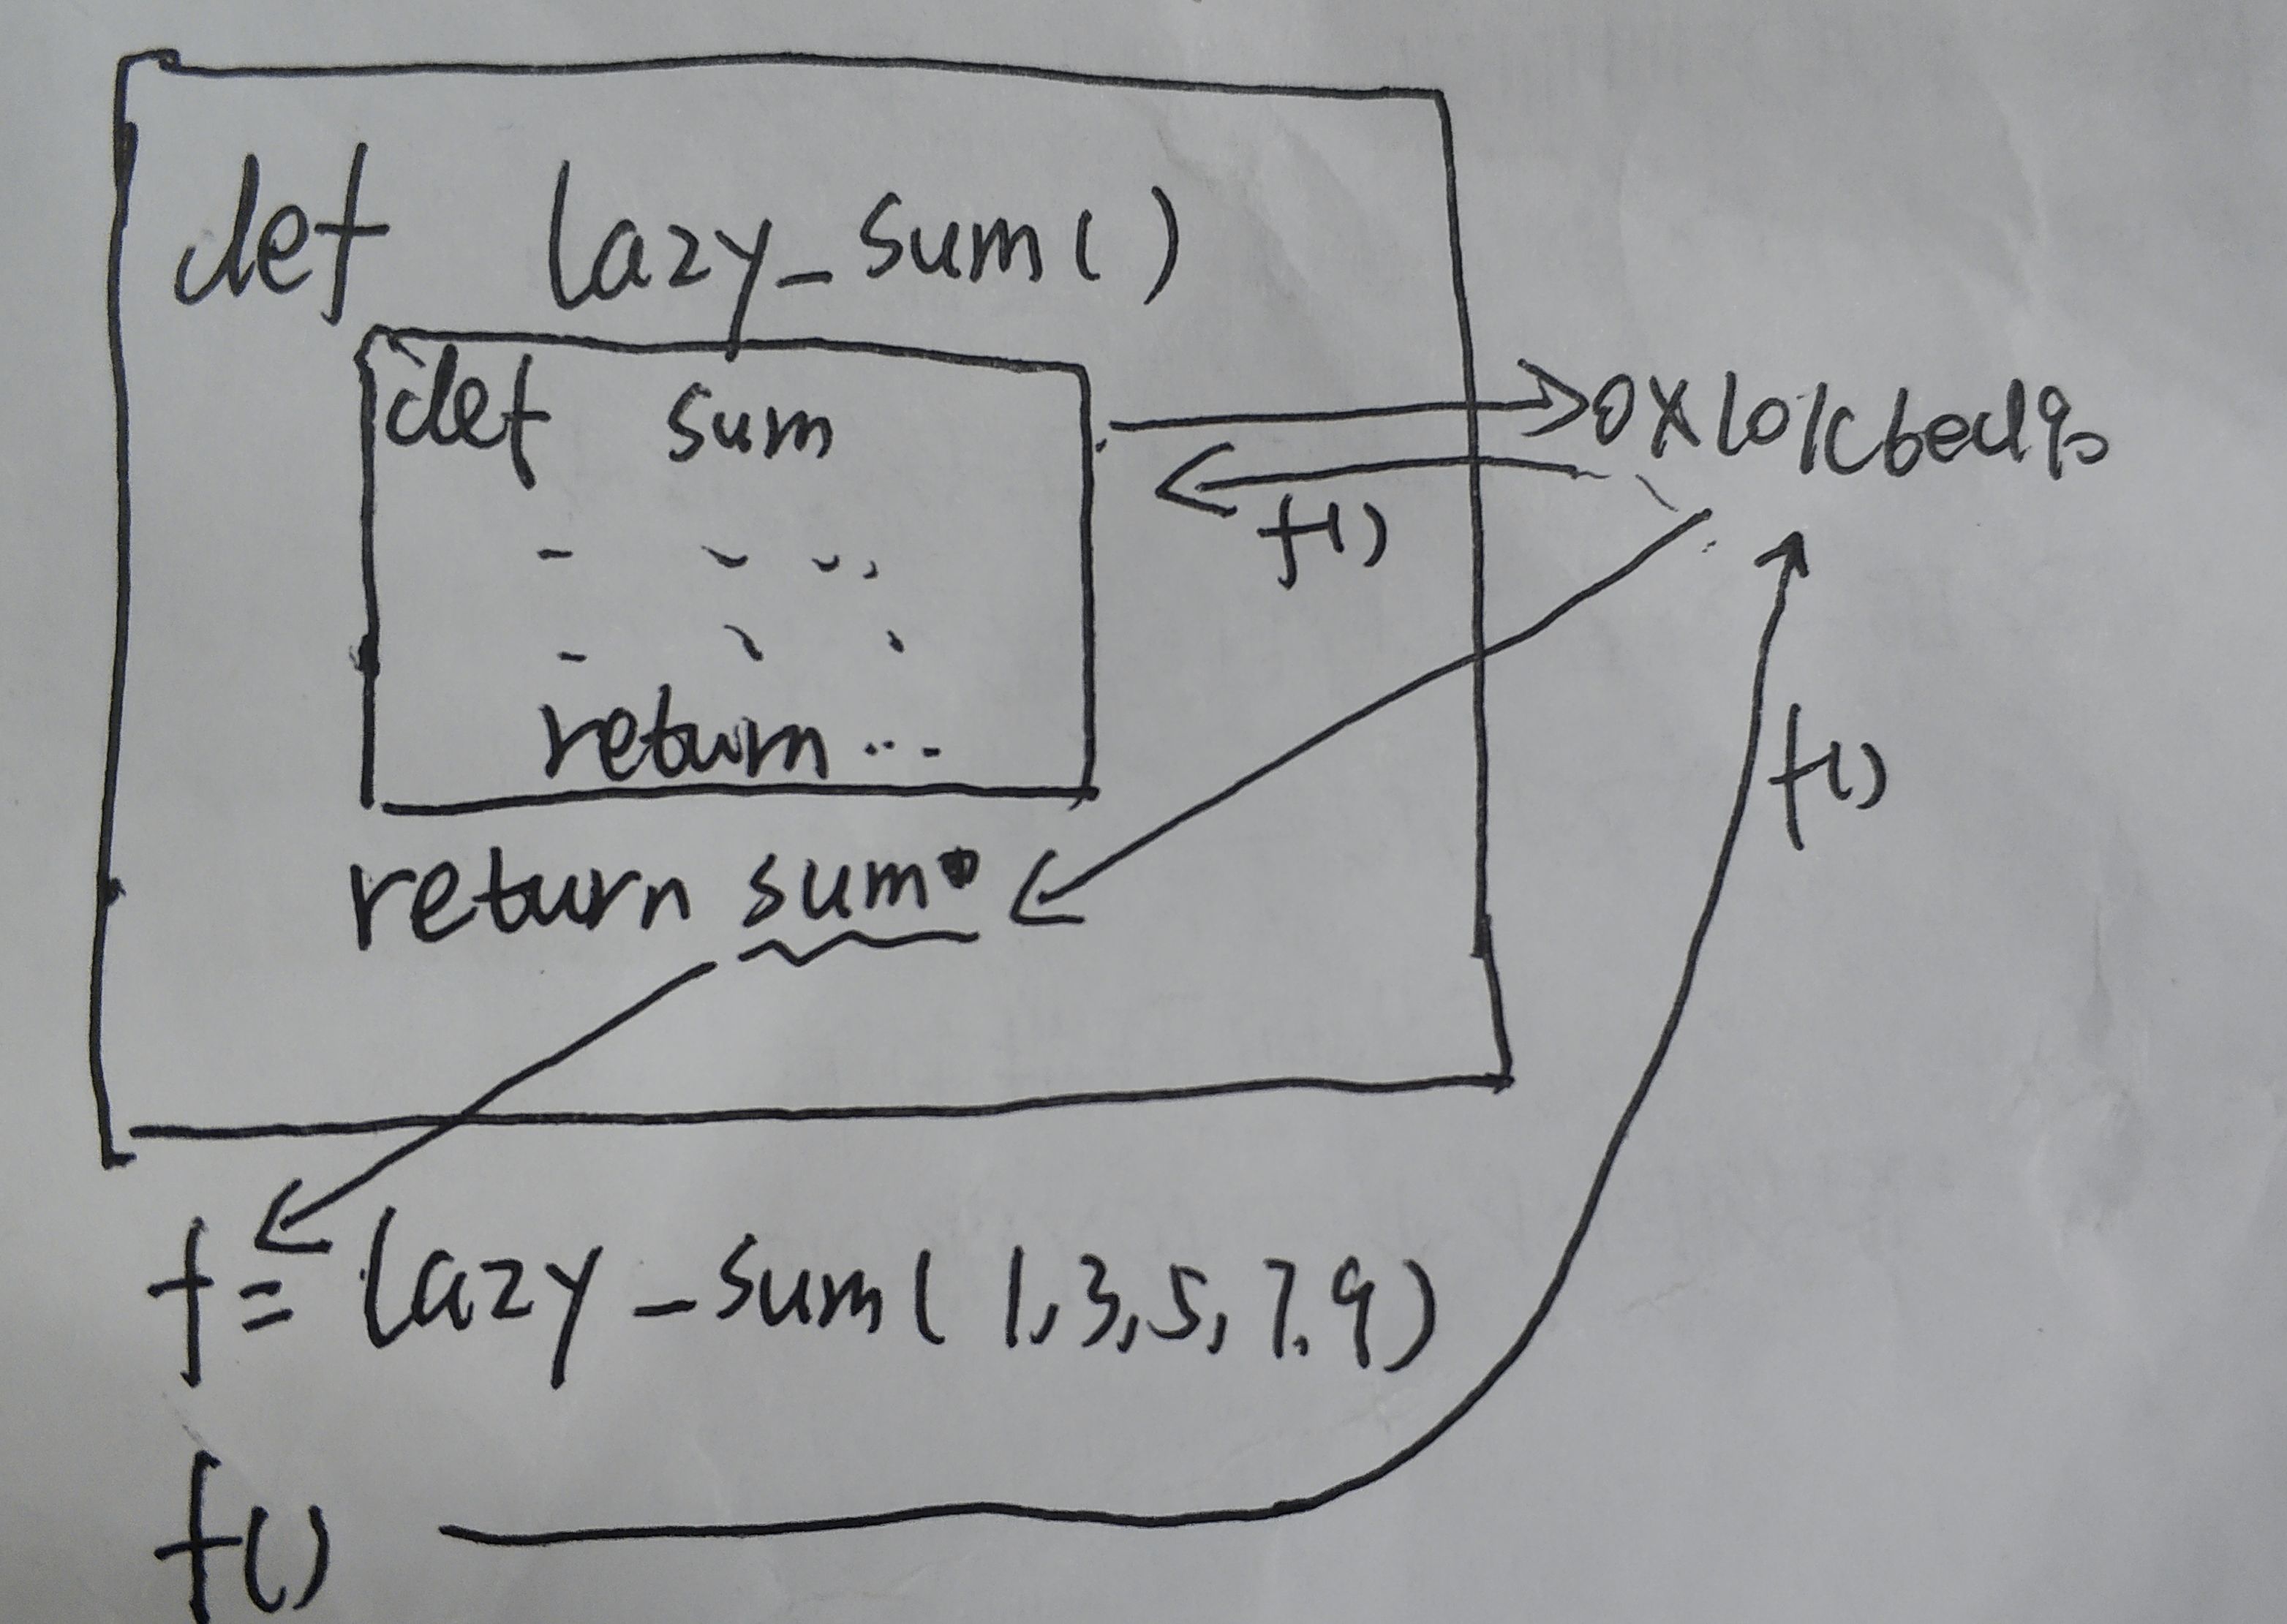 def lazy_sum()
def sum
- - - .
- - .
return ...
return sum
0x101c6ed90
f()
f()
f = lazy_sum( 1,3,5,7,9)
f()